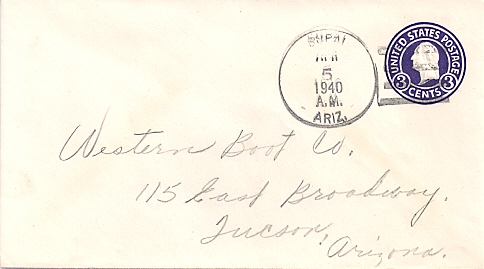 SUPAI
APR
5
1940
A.M.
ARIZ.
UNITED STATES POSTAGE
3 CENTS 3
Western Boot Co.
115 East Broadway.
Tucson,
Arizona.